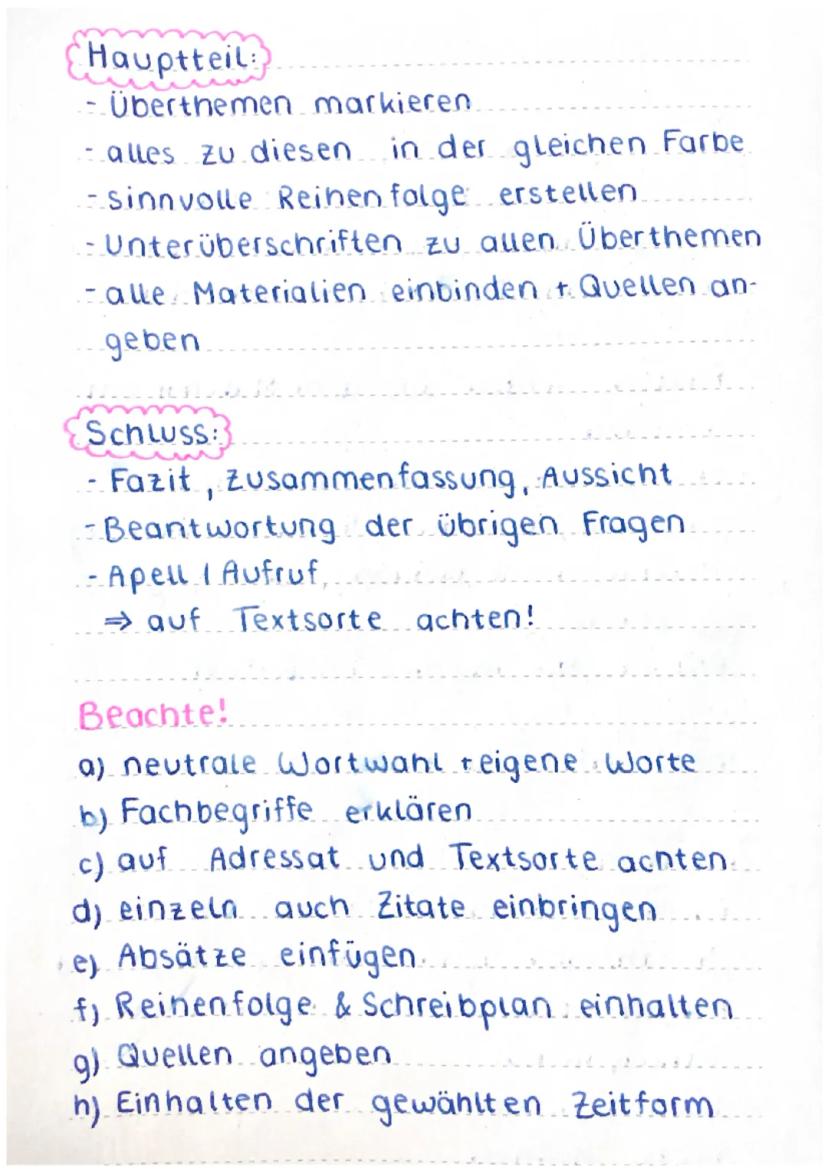 Hauptteil:
- Überthemen markieren
- alles zu diesen in der gleichen Farbe
- sinnvolle Reihenfolge erstellen
- Unterüberschriften zu allen Überthemen
- alle Materialien einbinden + Quellen an-
geben
Schluss:
- Fazit, Zusammenfassung, Aussicht
- Beantwortung der übrigen Fragen
- Apell / Aufruf
⇒ auf Textsorte achten!
Beachte!
a) neutrale Wortwahl + eigene Worte
b) Fachbegriffe erklären
c) auf Adressat und Textsorte achten
d) einzeln auch Zitate einbringen
e) Absätze einfügen
f) Reihenfolge & Schreibplan einhalten
g) Quellen angeben
h) Einhalten der gewählten Zeitform